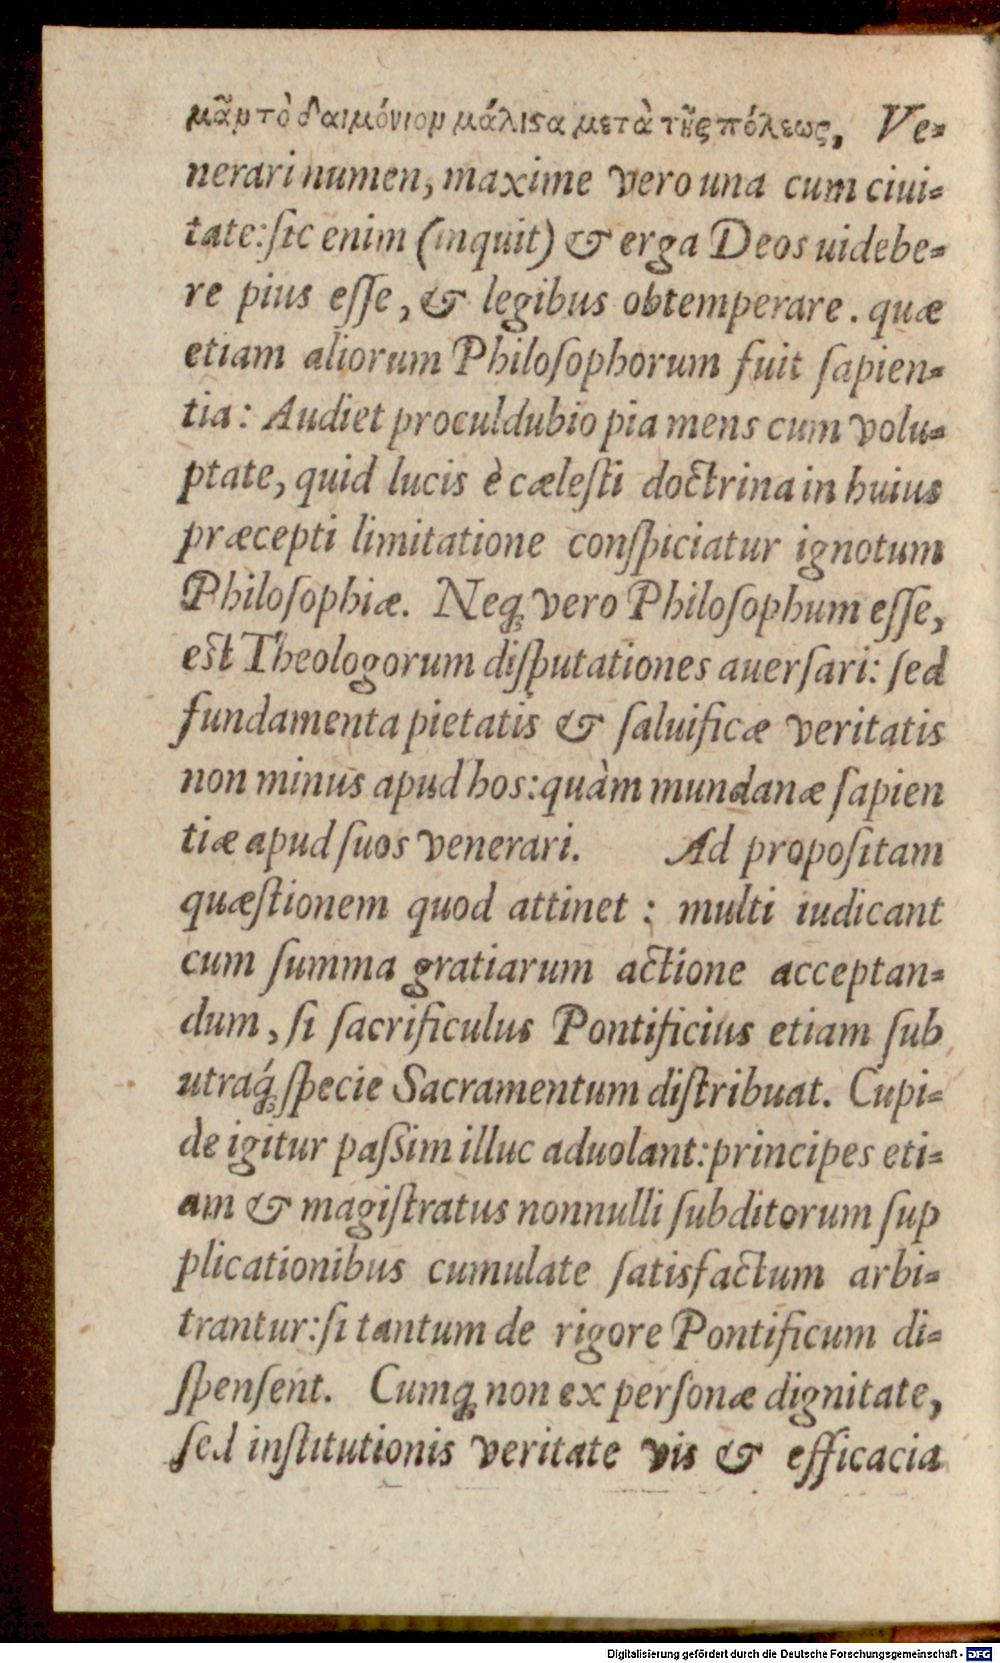 μᾶν τὸ δαιμόνιον μάλιϛα μετὰ τῆς πόλεως, Ve-
nerari numen, maxime vero una cum ciui-
tate: ſic enim (inquit) & erga Deos uidebe-
re pius eſſe, & legibus obtemperare. quæ
etiam aliorum Philoſophorum fuit ſapien-
tia: Audiet proculdubio pia mens cum volu-
ptate, quid lucis è cæleſti doctrina in huius
præcepti limitatione conſpiciatur ignotum
Philoſophiæ. Neq; vero Philoſophum eſſe,
est Theologorum diſputationes auerſari: ſed
fundamenta pietatis & ſaluificæ veritatis
non minus apud hos: quàm mundanæ ſapien
tiæ apud ſuos venerari. Ad propoſitam
quæſtionem quod attinet: multi iudicant
cum ſumma gratiarum actione acceptan-
dum, ſi ſacrificulus Pontificius etiam ſub
utraq́; ſpecie Sacramentum diſtribuat. Cupi-
de igitur paſsim illuc aduolant: principes eti-
am & magiſtratus nonnulli ſubditorum ſup
plicationibus cumulate ſatisfactum arbi-
trantur: ſi tantum de rigore Pontificum di-
ſpenſent. Cumq; non ex perſonæ dignitate,
ſed inſtitutionis veritate vis & efficacia
Digitalisierung gefördert durch die Deutsche Forschungsgemeinschaft - DFG